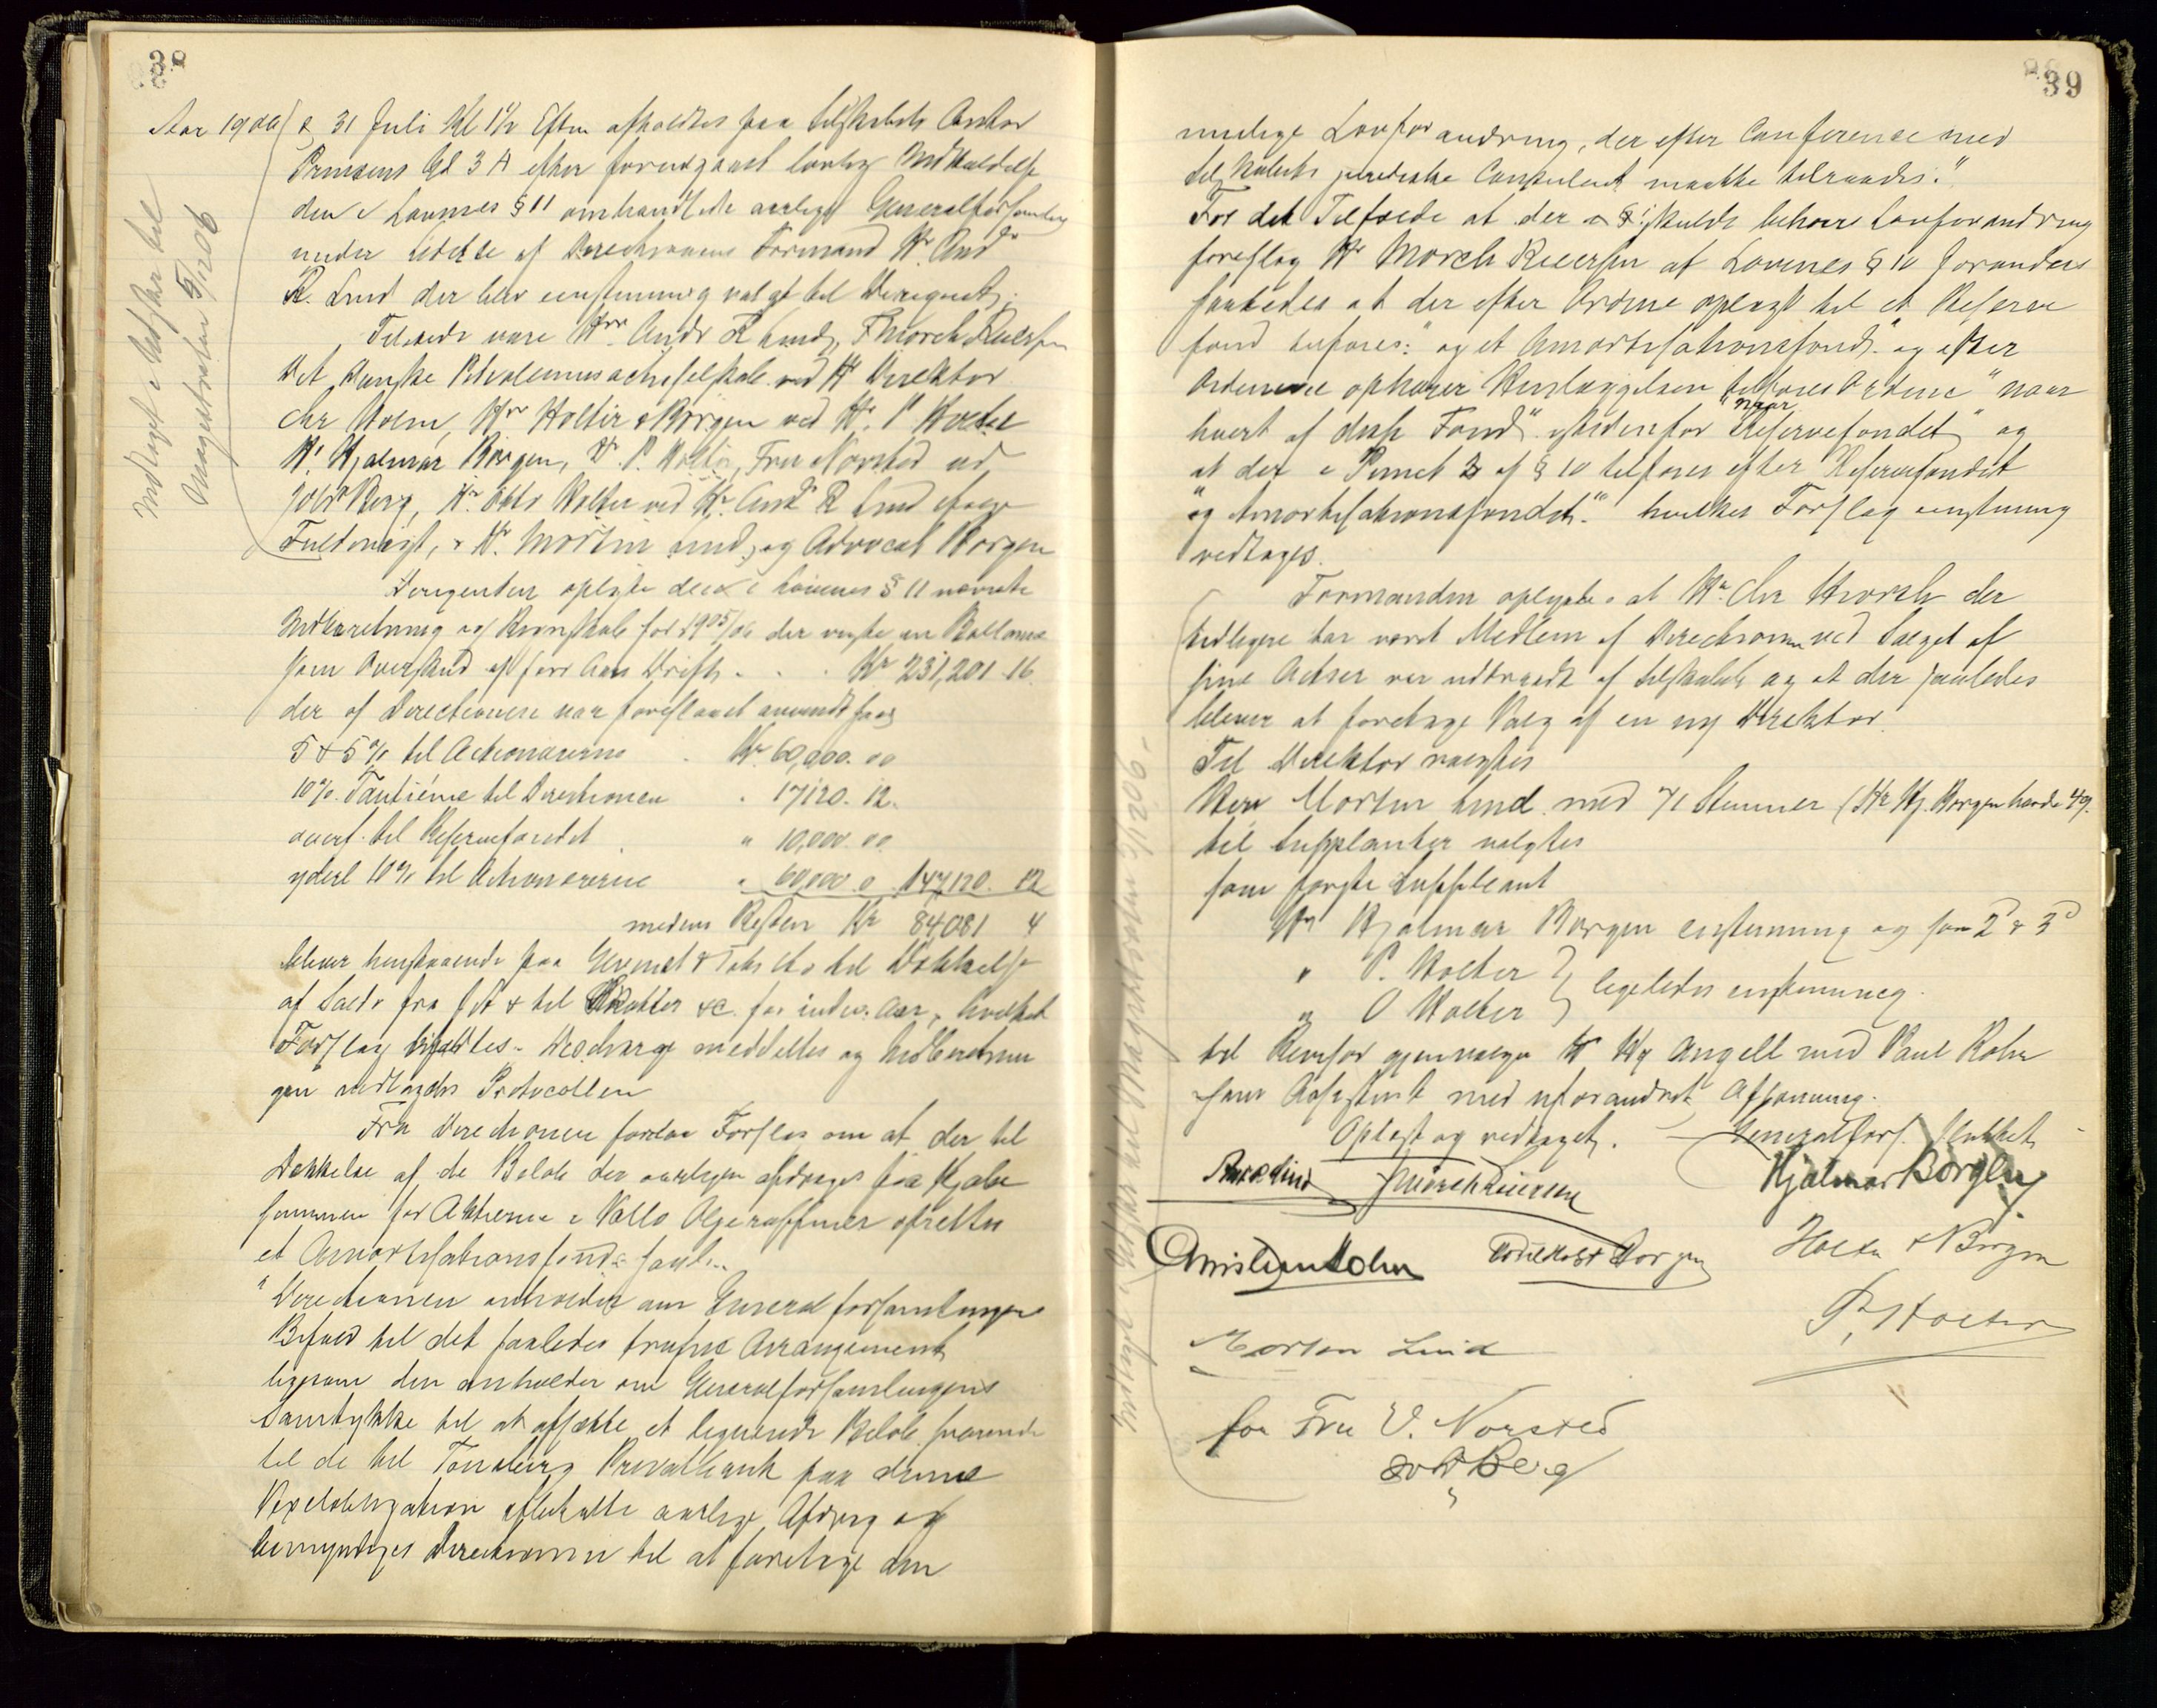 38
Aar 1906 d 31 Juli Kl 1½ Efterm afholdtes paa Selskabets Contor
Prinsens Gd 3 A efter forudgaaet lovlig Indkaldelse
den i Lovenes § 11 omhandlede aarlige Generalforsamling
under Ledelse af Directionens Formand Hr. Andr
R. Lind der blev eenstemmig valgt til Dirigent.
Tilstede vare Hrr. Andr R Lind, F Mørch Reiersen
Det Danske Petroleumsactieselskab ved Hr Direktor
Chr Holm, Hrr Holter & Børgen ved Hr. P Holter
Hr. Hjalmar Børgen, Hr. P. Holter, Fru Norsted ved
Joh Berg, Hr. Otto Holter ved Hr. Andr R Lind ifølge
Fuldmagt, Hr. Morten Lind, og Advocat Borgen
Dirigenten oplyste den i Lovenes § 11 nævnte
Indberetning og Regnskab for 1905/06 der viste en Ballance
som Overskud af forr Aars Drift . . . Kr 231,201.16
der af Directionen var foreslaaet anvendt saa
5 + 5 % til Actionærerne . Kr. 60,000.00
10 % Tantième til Directionen . 17120.12.
overf. til Reservefondet . " 10,000.00
yderl 10 % til Actionærerne " 60,000.0 147,120.12
medens Resten Kr 84081 4
bliver henstaaende paa Gevinst & Tabs Cto til Dækkelse
af Saldo fra & til Skatter &c. for indev. Aar, hvilket
Forslag bifaldtes. Decharge meddeltes og Indberetnin
gen vedlagdes Protocollen
Fra Directionen forelaa Forslag om at der til
Dækkelse af de Beløb der aarligen afdrages paa Kjøbe
summen for Aktierne i Vallø Oljeraffineri oprettes
et Amortisationsfond
"Directionen anholder om Generalforsamlingens
Bifald til det saaledes trufne Arrangement
ligesom den anholder om Generalforsamlingens
Samtykke til at afsætte et lignende Beløb svarende
til de til Tønsberg Privatbank paa denne
Vexelobligation afbetalte aarlige Afdrag og
bemyndiges Directionen til at foretage den
Indtaget i Udskrift til
Magistraten 5/12 06
39
mulige Lovforandring, der efter Conference med
Selskabets juridiske Consulent maatte tilraades."
For det Tilfælde at der skulde behøves Lovforandring
foreslog Hr Mørch Reiersen at Lovenes § 10 forandres
saaledes at der efter Ordene oplagt til et Reserve
fond tilføies: "og et Amortisationsfond" og efter
Ordene ophører Henlæggelsen tilføies Ordene "naar
hvert af disse Fond" istedenfor "naar Reservefondet" og
at der i Punct 3 af § 10 tilføies efter Reservefondet
"og Amortisationsfondet." hvilket Forslag eenstemmig
vedtoges.
Formanden oplyste at Hr. Chr Hvorsle der
tidligere har været Medlem af Directionen ved Salget af
sine Actier var udtraadt af Selskabet og at der saaledes
bliver at foretage Valg af en ny Direktør.
Til Direktør valgtes
Herr Morten Lind med 71 Stemmer (Hr Hj. Borgen havde 49.
til Supplanter valgtes
som første Suppleant
Hr Hjalmar Borgen enstemmig og som 2d & 3d
" P. Holter
" O Holter } ligeledes enstemmig.
til Revisor gjenvalgtes Hr Hg Angell med Paul Rohn
som Assistent med uforandret Aflønning.
Oplæst og vedtaget. — Generalfors. sluttet
Andr. Lind F Mørch Reiersen Hjalmar Børgen
Christian Holm Borgen Holter & Børgen
Morten Lind P. Holter
for Fru V. Norsted
Joh Berg
Indtaget i Udskrift til Magistraten 5/12 06.